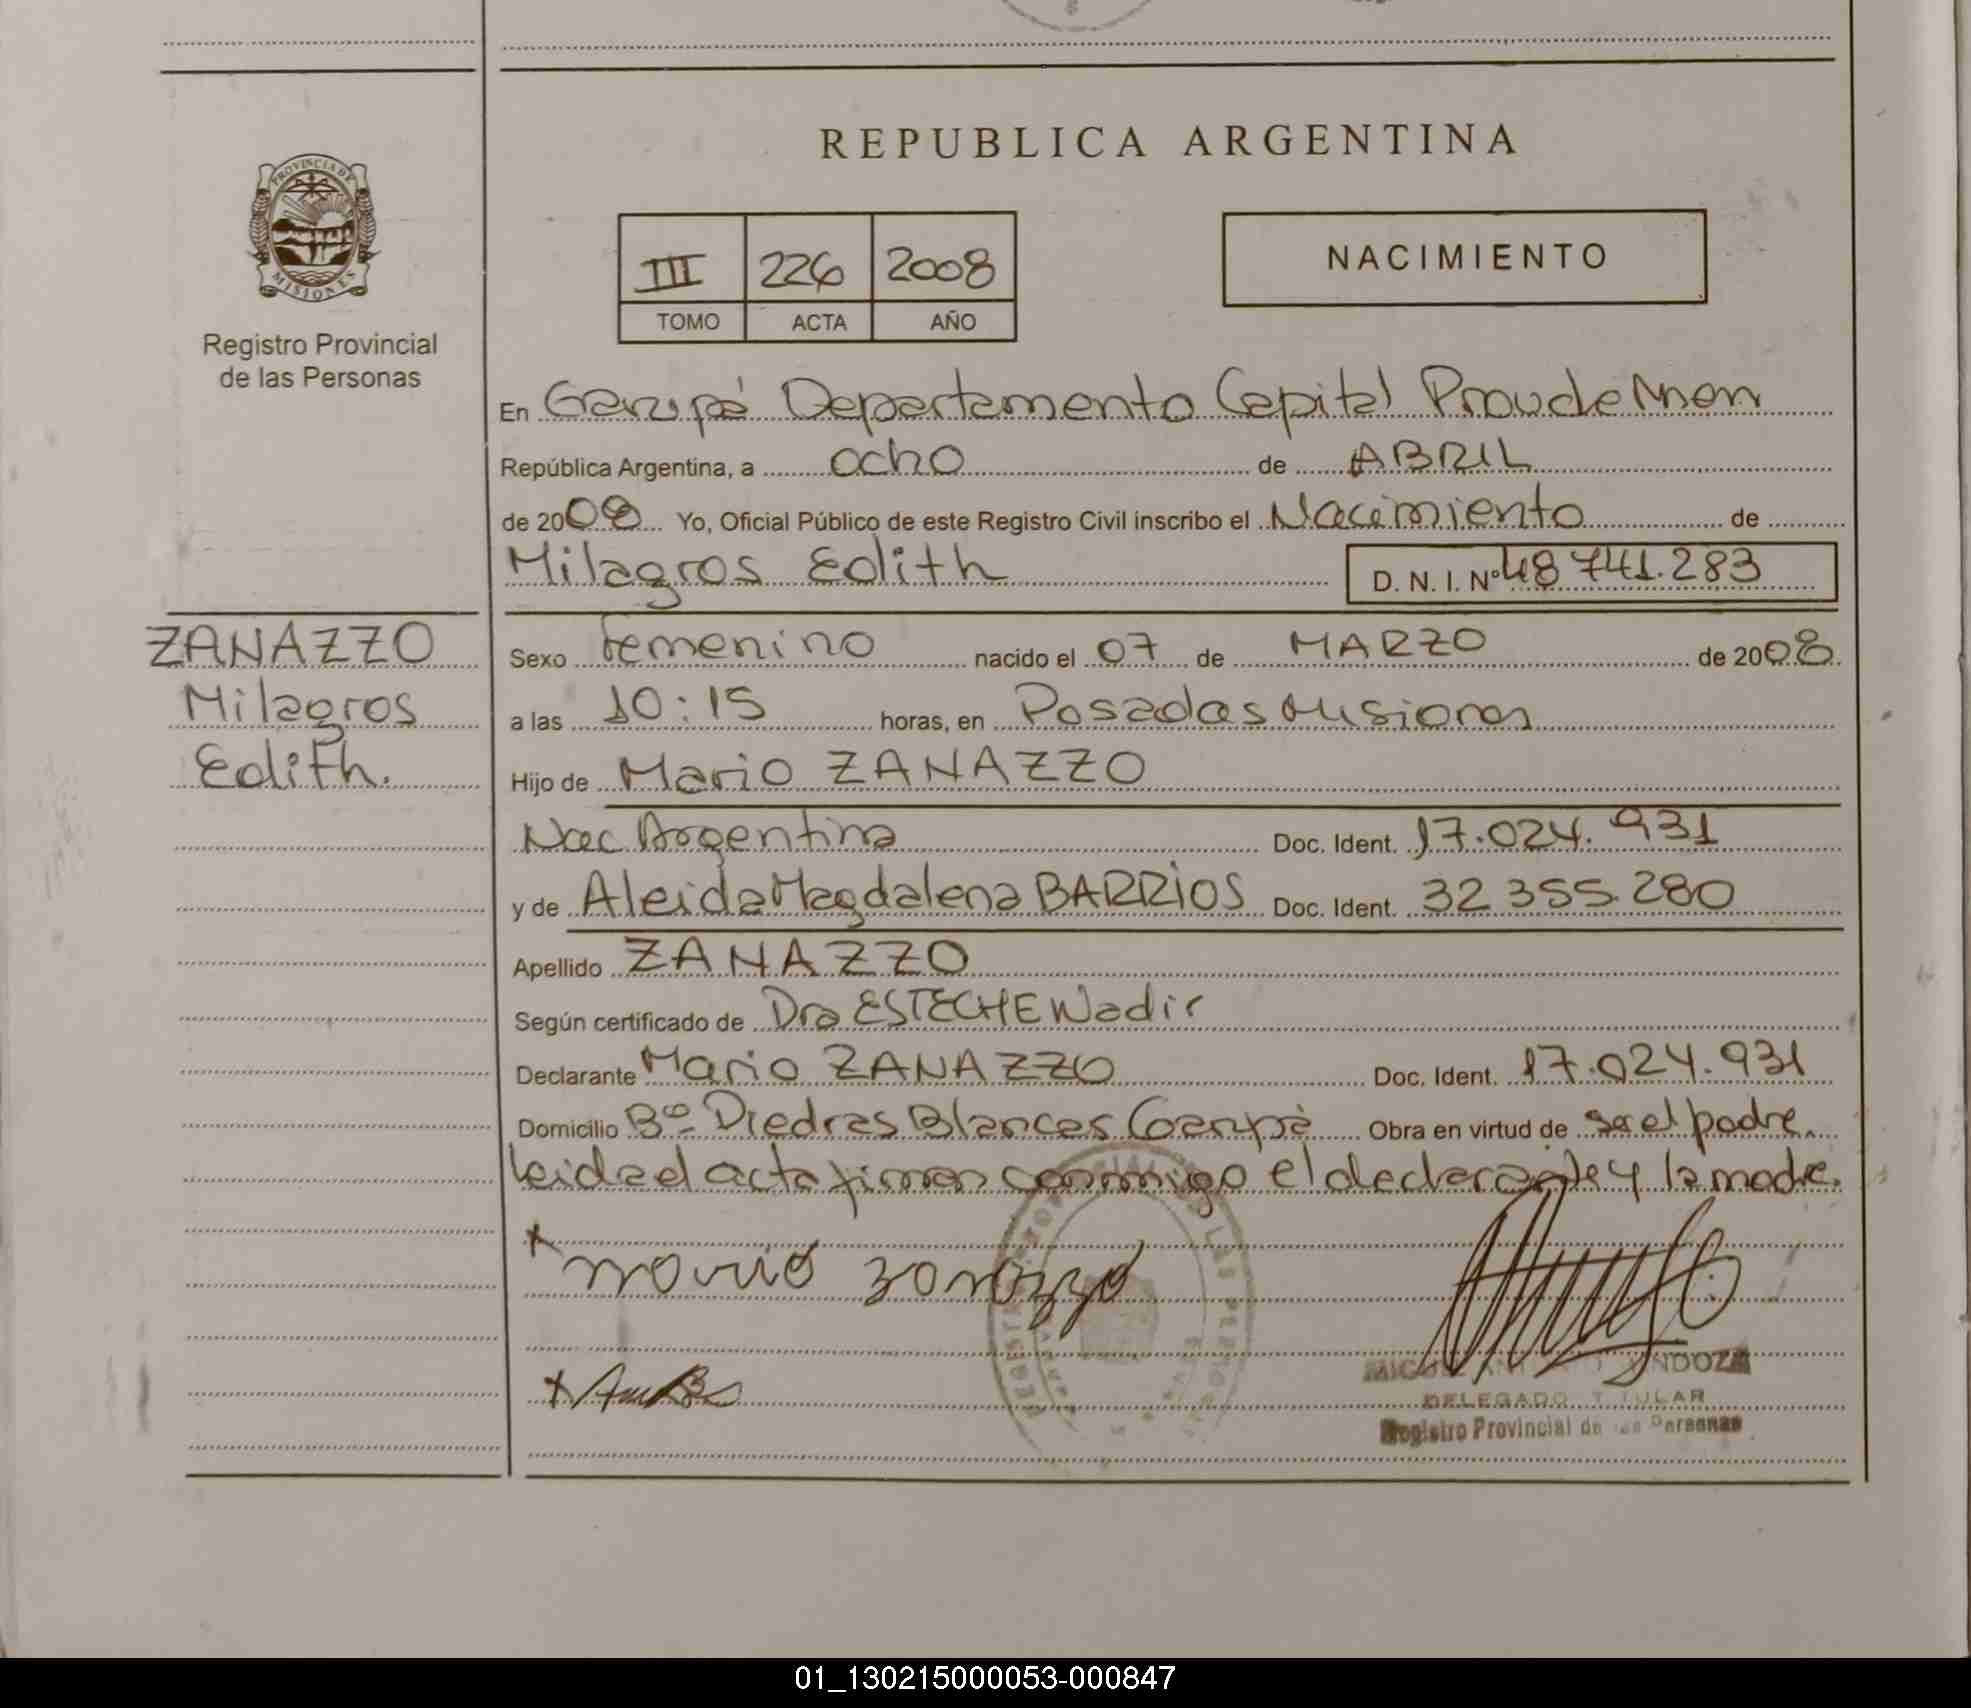 PROVINCIA DE
MISIONES
Registro Provincial
de las Personas
ZANAZZO
Milagros
Edith.
REPUBLICA ARGENTINA
III 226 2008
TOMO ACTA AÑO
NACIMIENTO
En Garupá Departamento Capital Prov de
República Argentina, a ocho de ABRIL
de 2008 Yo, Oficial Público de este Registro Civil inscribo el Nacimiento de
Milagros Edith D. N. I. Nº 48 741.283
Sexo femenino nacido el 07 de MARZO de 2008
a las 10:15 horas, en Posadas Misiones
Hijo de Mario ZANAZZO
Nac Argentina Doc. Ident. 17.024.931
y de Aleida Magdalena BARRIOS Doc. Ident. 32 355.280
Apellido ZANAZZO
Según certificado de Dra ESTECHE Nadir
Declarante Mario ZANAZZO Doc. Ident. 17.024.931
Domicilio Bº Piedras Blancas Garupá Obra en virtud de ser el padre.
leida el acta firman conmigo el declarante y la madre.
mario zanazzo
DELEGADO TITULAR
Registro Provincial de las Personas
01_130215000053-000847